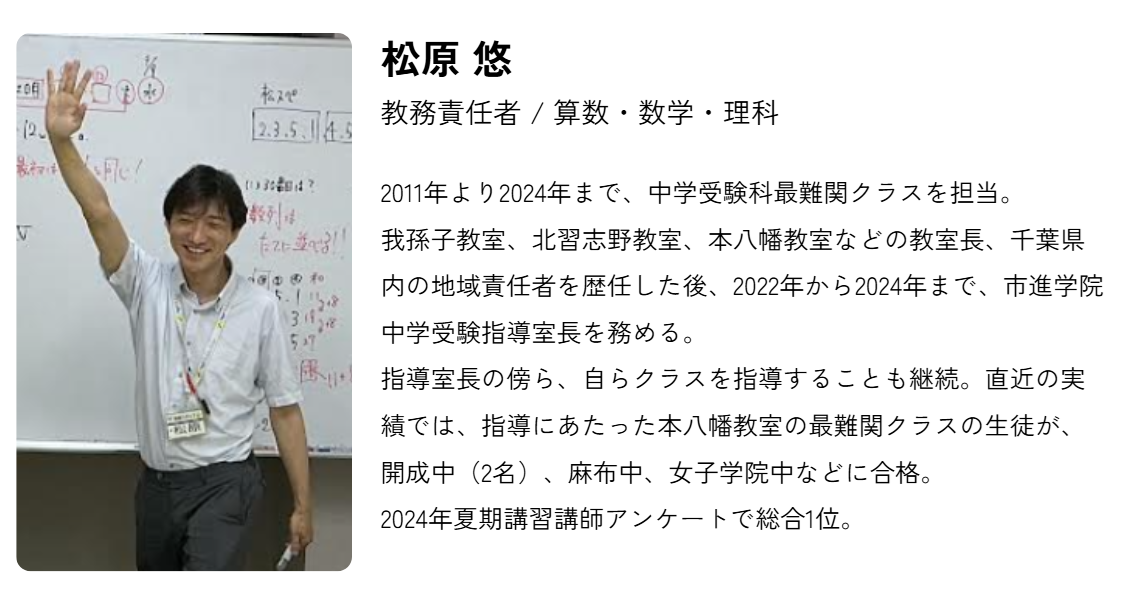 松原 悠
教務責任者 / 算数・数学・理科
2011年より2024年まで、中学受験科最難関クラスを担当。
我孫子教室、北習志野教室、本八幡教室などの教室長、千葉県
内の地域責任者を歴任した後、2022年から2024年まで、市進学院
中学受験指導室長を務める。
指導室長の傍ら、自らクラスを指導することも継続。直近の実
績では、指導にあたった本八幡教室の最難関クラスの生徒が、
開成中（2名）、麻布中、女子学院中などに合格。
2024年夏期講習講師アンケートで総合1位。
松スペ
2.3.5.1
4.5
数列は
たてに並べる!!